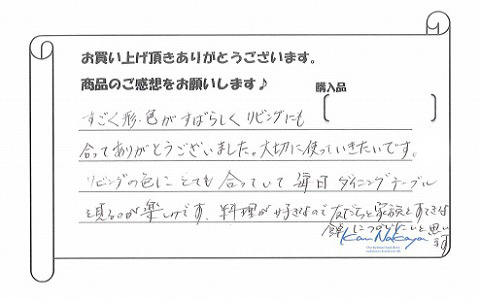 お買い上げ頂きありがとうございます。
商品のご感想をお願いします♪
購入品
すごく形・色がすばらしくリビングにも
合ってありがとうございました。大切に使っていきたいです。
リビングの色にとても合っていて毎日ダイニングテーブル
を見るのが楽しみです。料理が好きなので友だちと家族とすてきな
につどいたいと思い
ます